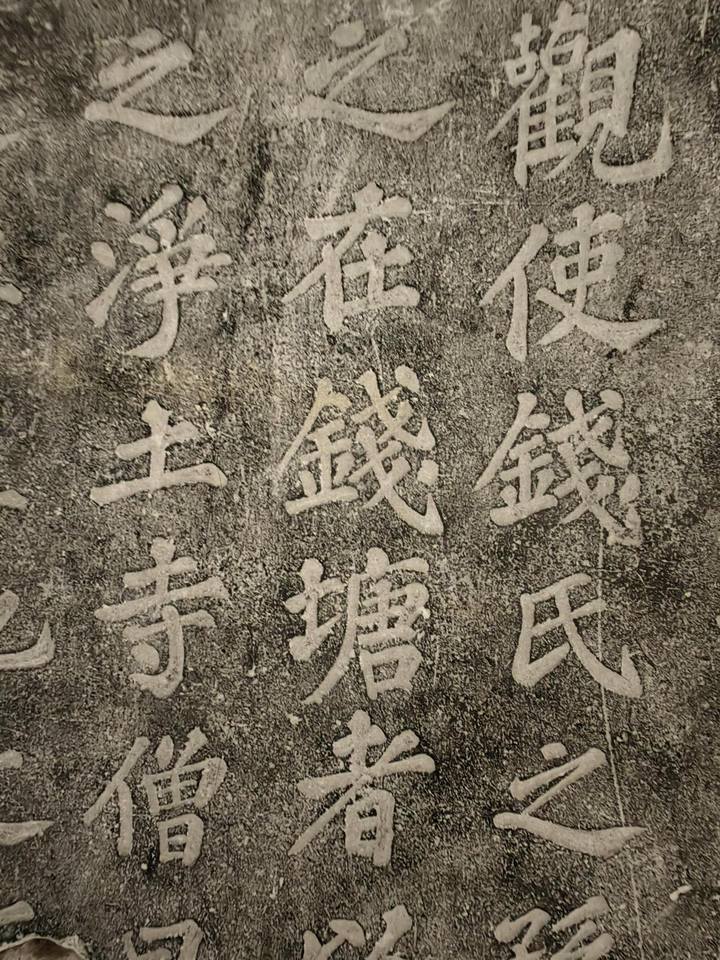 觀使錢氏之
之在錢塘者
之淨土寺僧